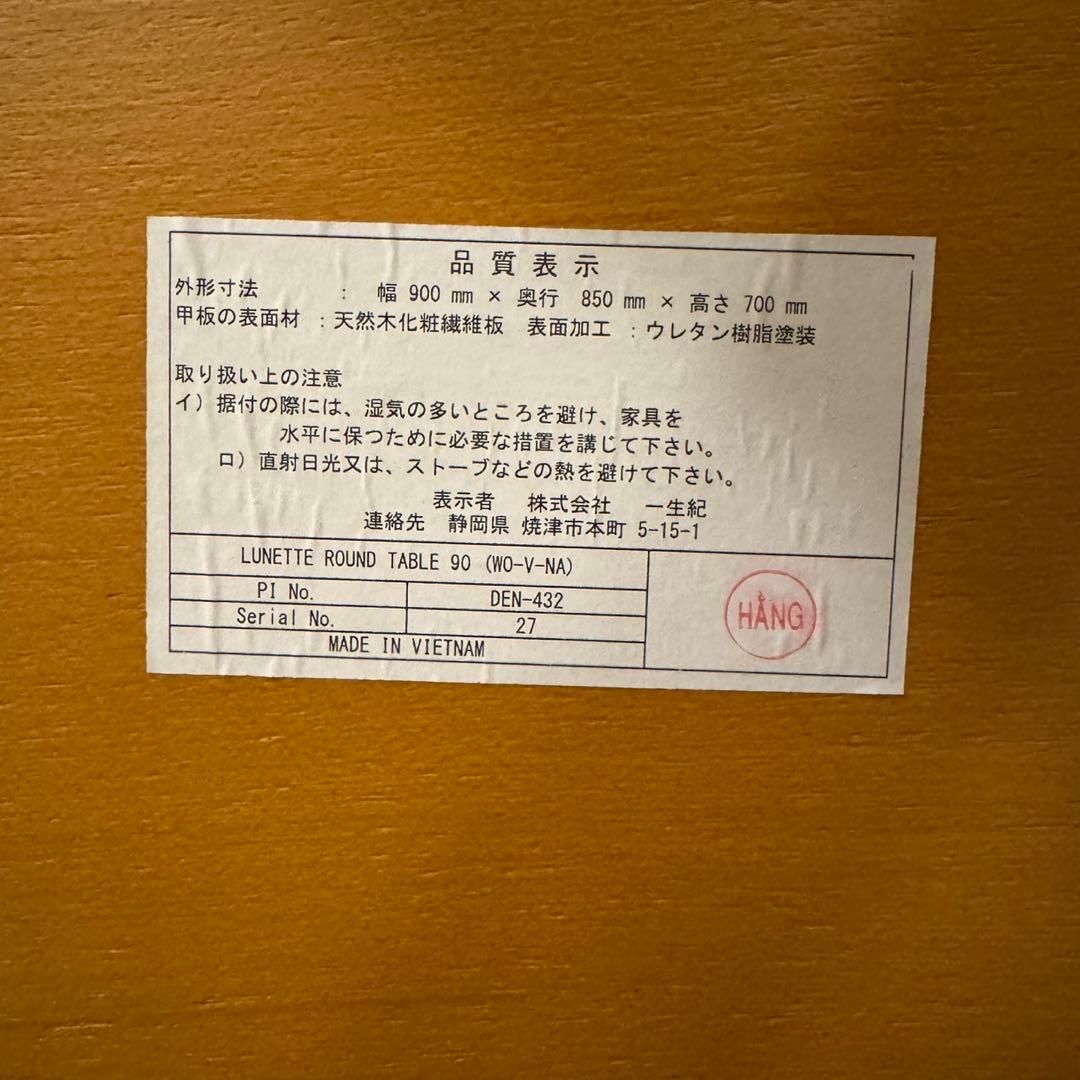 品質表示
外形寸法 : 幅 900 mm × 奥行 850 mm × 高さ 700 mm
甲板の表面材 : 天然木化粧繊維板 表面加工 : ウレタン樹脂塗装
取り扱い上の注意
イ) 据付の際には、湿気の多いところを避け、家具を
水平に保つために必要な措置を講じて下さい。
ロ) 直射日光又は、ストーブなどの熱を避けて下さい。
表示者 株式会社 一生紀
連絡先 静岡県 焼津市本町 5-15-1
LUNETTE ROUND TABLE 90 (WO-V-NA)
PI No. DEN-432
Serial No. 27
MADE IN VIETNAM
HẰNG